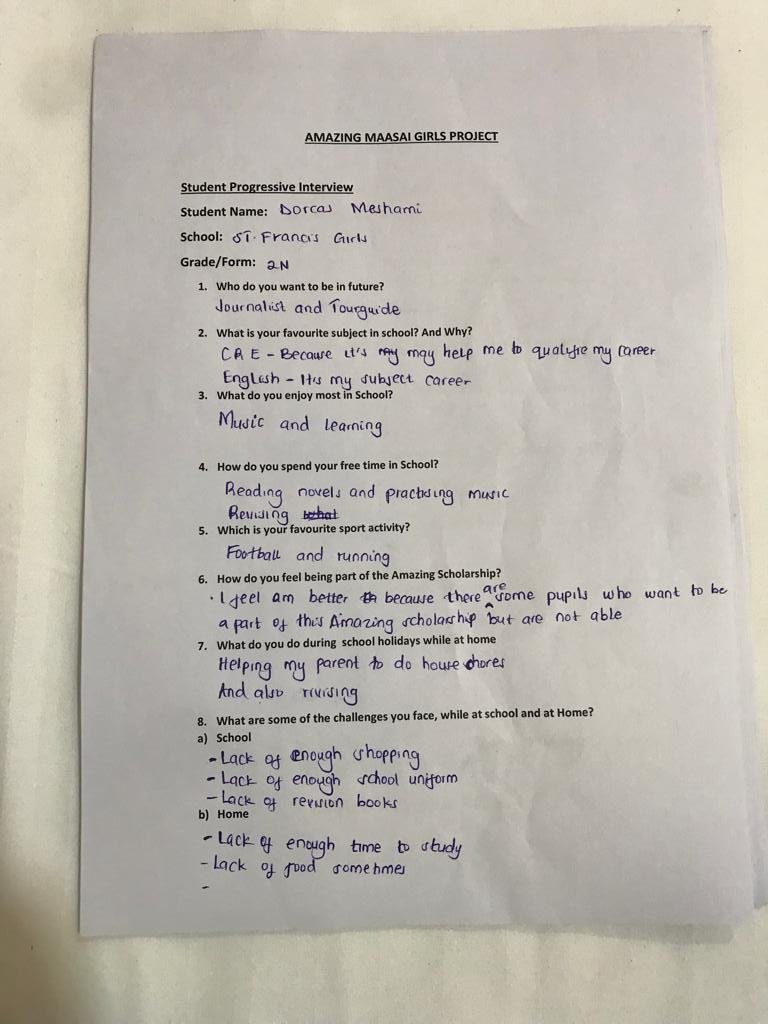 AMAZING MAASAI GIRLS PROJECT
Student Progressive Interview
Student Name: Dorcas Meshami
School: ST. Francis Girls
Grade/Form: 2N
1. Who do you want to be in future?
Journalist and Tourguide
2. What is your favourite subject in school? And Why?
C R E - Because it's may may help me to qualifie my career
English - Its my subject career
3. What do you enjoy most in School?
Music and learning
4. How do you spend your free time in School?
Reading novels and practising music
Revising what
5. Which is your favourite sport activity?
Football and running
6. How do you feel being part of the Amazing Scholarship?
• I feel am better th because there are some pupils who want to be
a part of this Amazing scholarship but are not able
7. What do you do during school holidays while at home
Helping my parent to do house chores
And also revising
8. What are some of the challenges you face, while at school and at Home?
a) School
- Lack of enough shopping
- Lack of enough school uniform
- Lack of revision books
b) Home
- Lack of enough time to study
- Lack of food sometimes
-